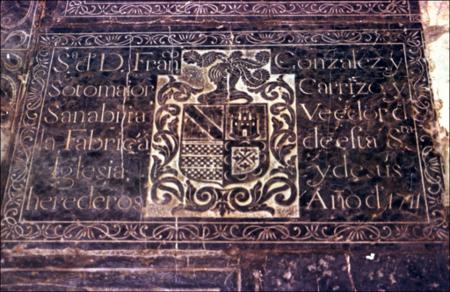 S.a d D. Fran.co Gonzalez y
Sotomaior Carrizo y
Sanabria Veedor d
la Fabrica de esta S.ta
Iglesia y de sus
herederos Año d 1711